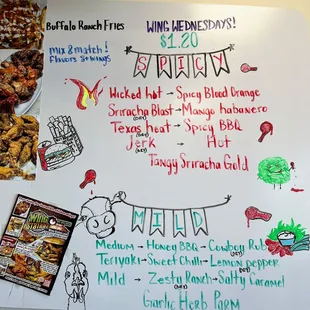 Buffalo Ranch Fries
WING WEDNESDAYS!
$1.20
Mix & match!
Flavors & wings
SPICY
Wicked hot → Spicy Blood Orange
Sriracha Blast → Mango habanero
(DRY)
Texas heat → Spicy BBQ
Jerk → Hot
(DRY)
Tangy Sriracha Gold
MILD
Medium → Honey BBQ → Cowboy Rub
(DRY)
Teriyaki → Sweet Chili → Lemon pepper
(DRY)
Mild → Zesty Ranch → Salty Caramel
(DRY)
Garlic Herb Parm
Wing
Station